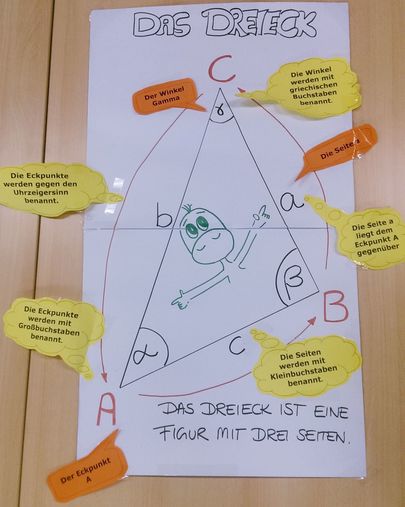 DAS DREIECK
C
Der Winkel
Gamma
Die Winkel
werden mit
griechischen
Buchstaben
benannt.
γ
Die Seite a
Die Eckpunkte
werden gegen den
Uhrzeigersinn
benannt.
b
a
Die Seite a
liegt dem
Eckpunkt A
gegenüber
β
B
Die Eckpunkte
werden mit
Großbuchstaben
benannt.
α
c
Die Seiten
werden mit
Kleinbuchstaben
benannt.
A
DAS DREIECK IST EINE
FIGUR MIT DREI SEITEN.
Der Eckpunkt
A